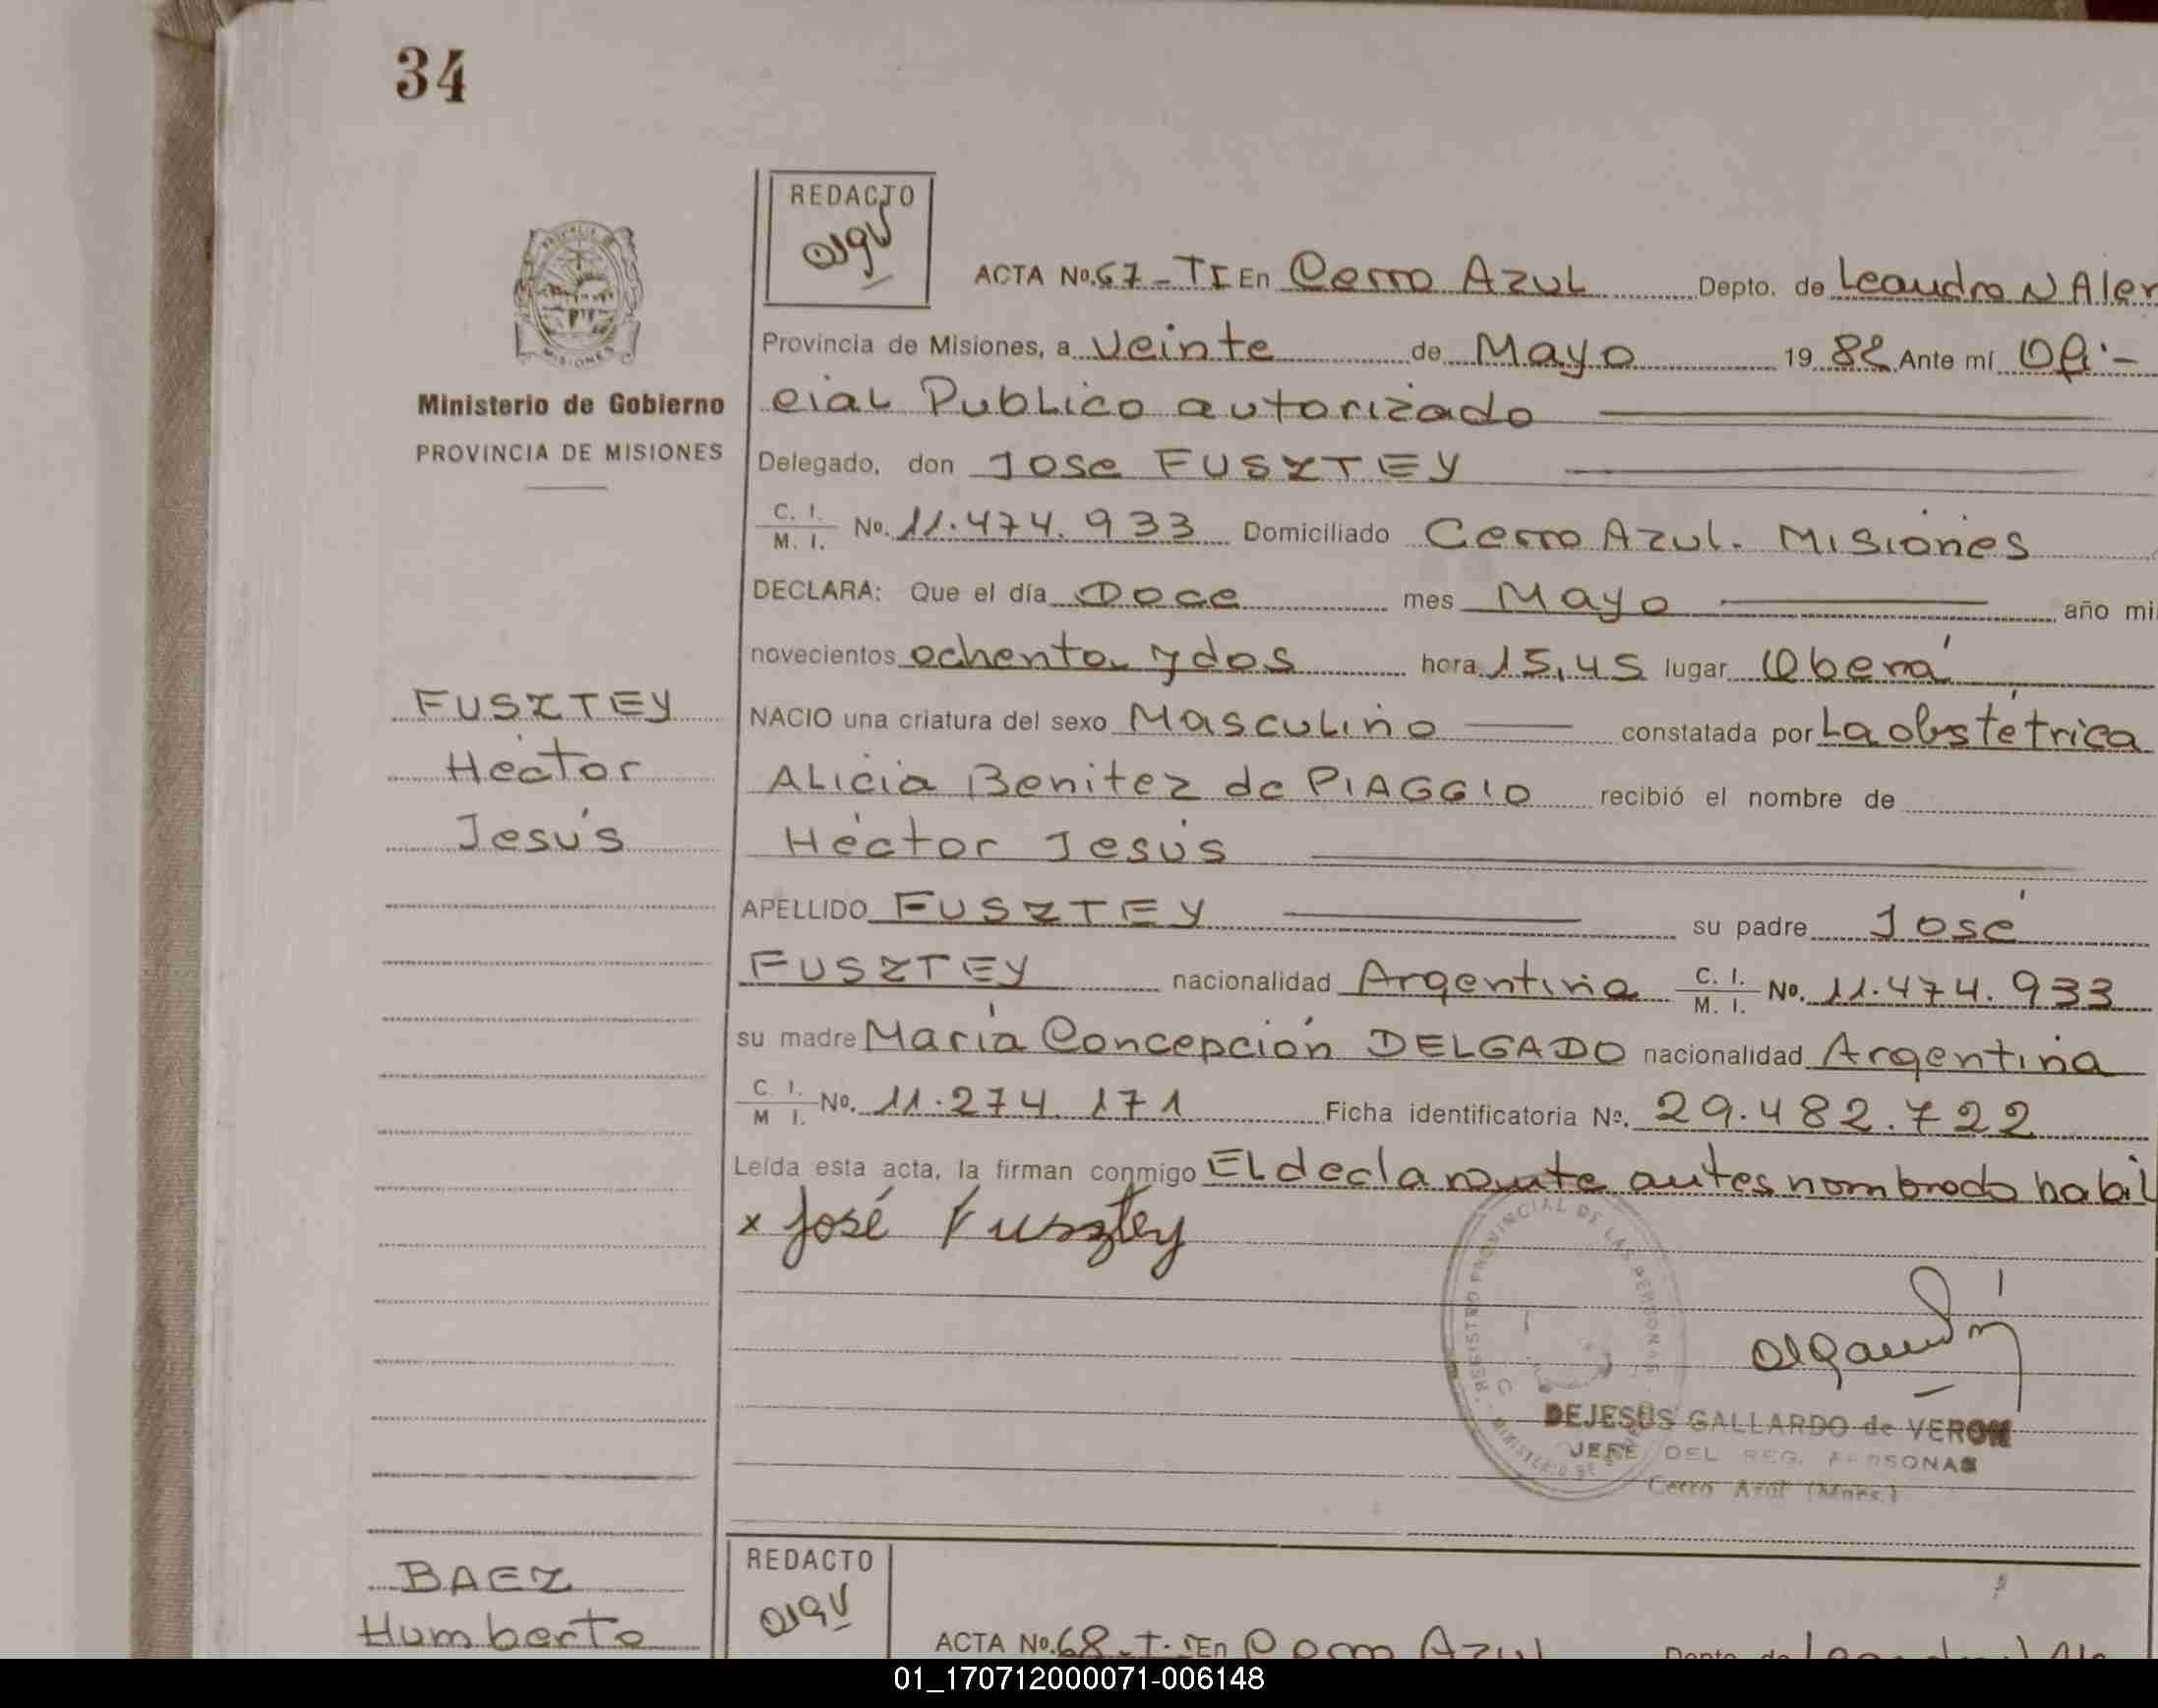 34
REDACTO
ACTA No. 67 - TI En Cerro Azul Depto. de Leandro N Alem
Provincia de Misiones, a Veinte de Mayo 1982 Ante mí Ofi-
cial Publico autorizado
Ministerio de Gobierno
PROVINCIA DE MISIONES
Delegado, don Jose FUSZTEY
C. I. M. I. No. 11.474.933 Domiciliado Cerro Azul. Misiones
DECLARA: Que el día Doce mes Mayo año mil
novecientos ochenta y dos hora 15,45 lugar Oberá
FUSZTEY
Héctor
Jesús
NACIO una criatura del sexo Masculino constatada por La obstétrica
Alicia Benitez de PIAGGIO recibió el nombre de
Héctor Jesús
APELLIDO FUSZTEY su padre José
FUSZTEY nacionalidad Argentina C. I. M. I. No. 11.474.933
su madre María Concepción DELGADO nacionalidad Argentina
C. I. M. I. No. 11.274.171 Ficha identificatoria No. 29.482.722
Leída esta acta, la firman conmigo El declarante antes nombrado habil
x José Fusztey
REGISTRO PROVINCIAL DE LAS PERSONAS
MINISTERIO DE
DEJESUS GALLARDO de VERON
JEFE DEL REG. PERSONAS
Cerro Azul (Mnes.)
BAEZ
Humberto
REDACTO
ACTA No. 68 - T. I En Cerro Azul Depto. de
01_170712000071-006148